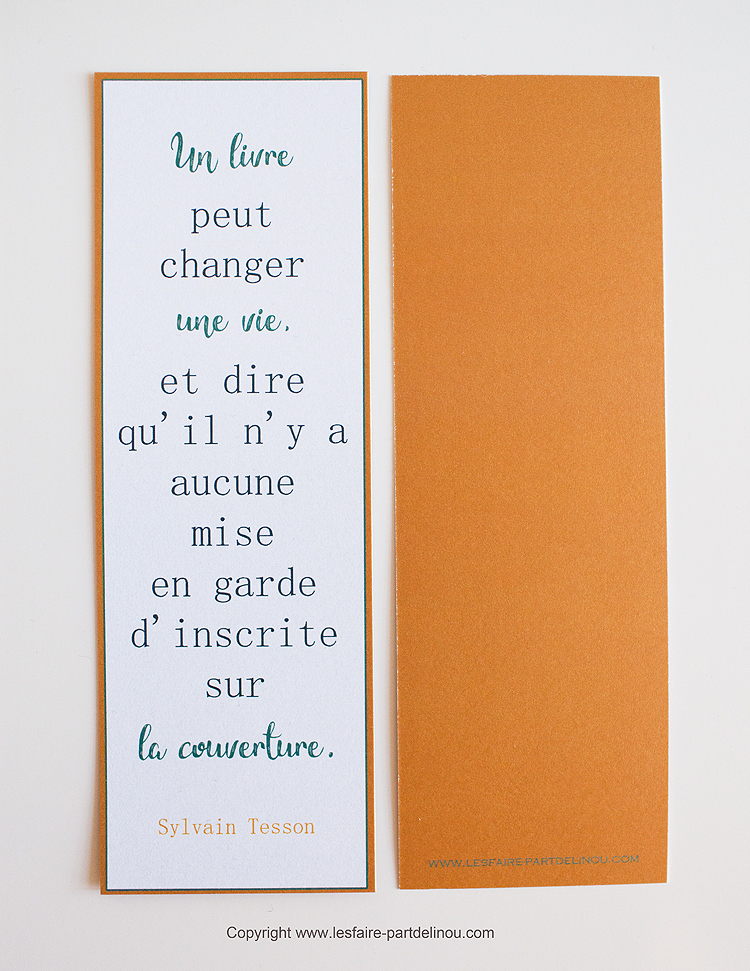 Un livre
peut
changer
une vie.
et dire
qu'il n'y a
aucune
mise
en garde
d'inscrite
sur
la couverture.
Sylvain Tesson
WWW.LESFAIRE-PARTDELINOU.COM
Copyright www.lesfaire-partdelinou.com